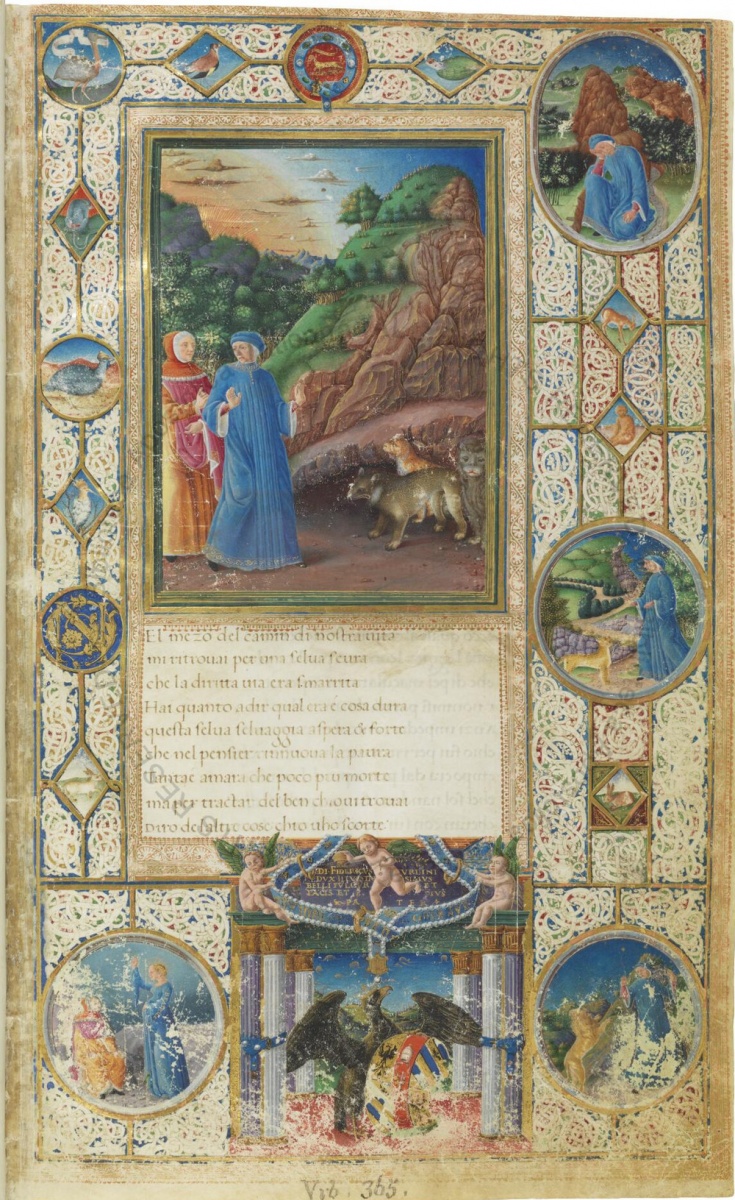 El mezo del camin di nostra uita
mi ritrouai per una selua scura
che la diritta uia era smarrita
Hai quanto a dir qual era e cosa dura
questa selua seluaggia aspera & forte
che nel pensier rinuoua la paura
Tantae amara che poco piu morte
ma per tractar del ben chioui trouai
Diro de laltre cose chio uho scorte
DVX
BELLI
PACIS ET
Vrb. 365.